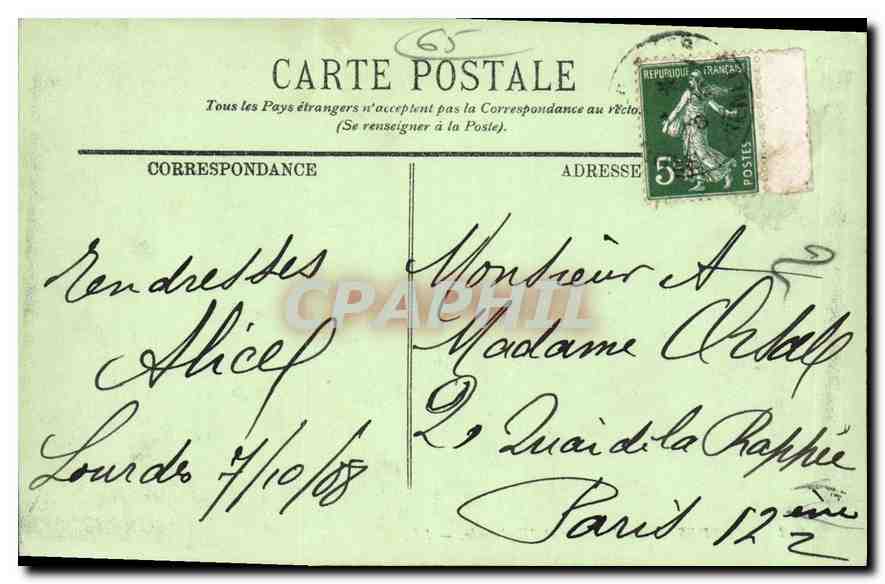 65
CARTE POSTALE
Tous les Pays étrangers n'acceptent pas la Correspondance au recto.
(Se renseigner à la Poste).
CORRESPONDANCE
ADRESSE
REPUBLIQUE FRANÇAISE
5c
POSTES
Tendresses
Alice
Lourdes 7/10/08
Monsieur &
Madame
2, Quai de la Rappée
Paris 12ème
CPAPHIL